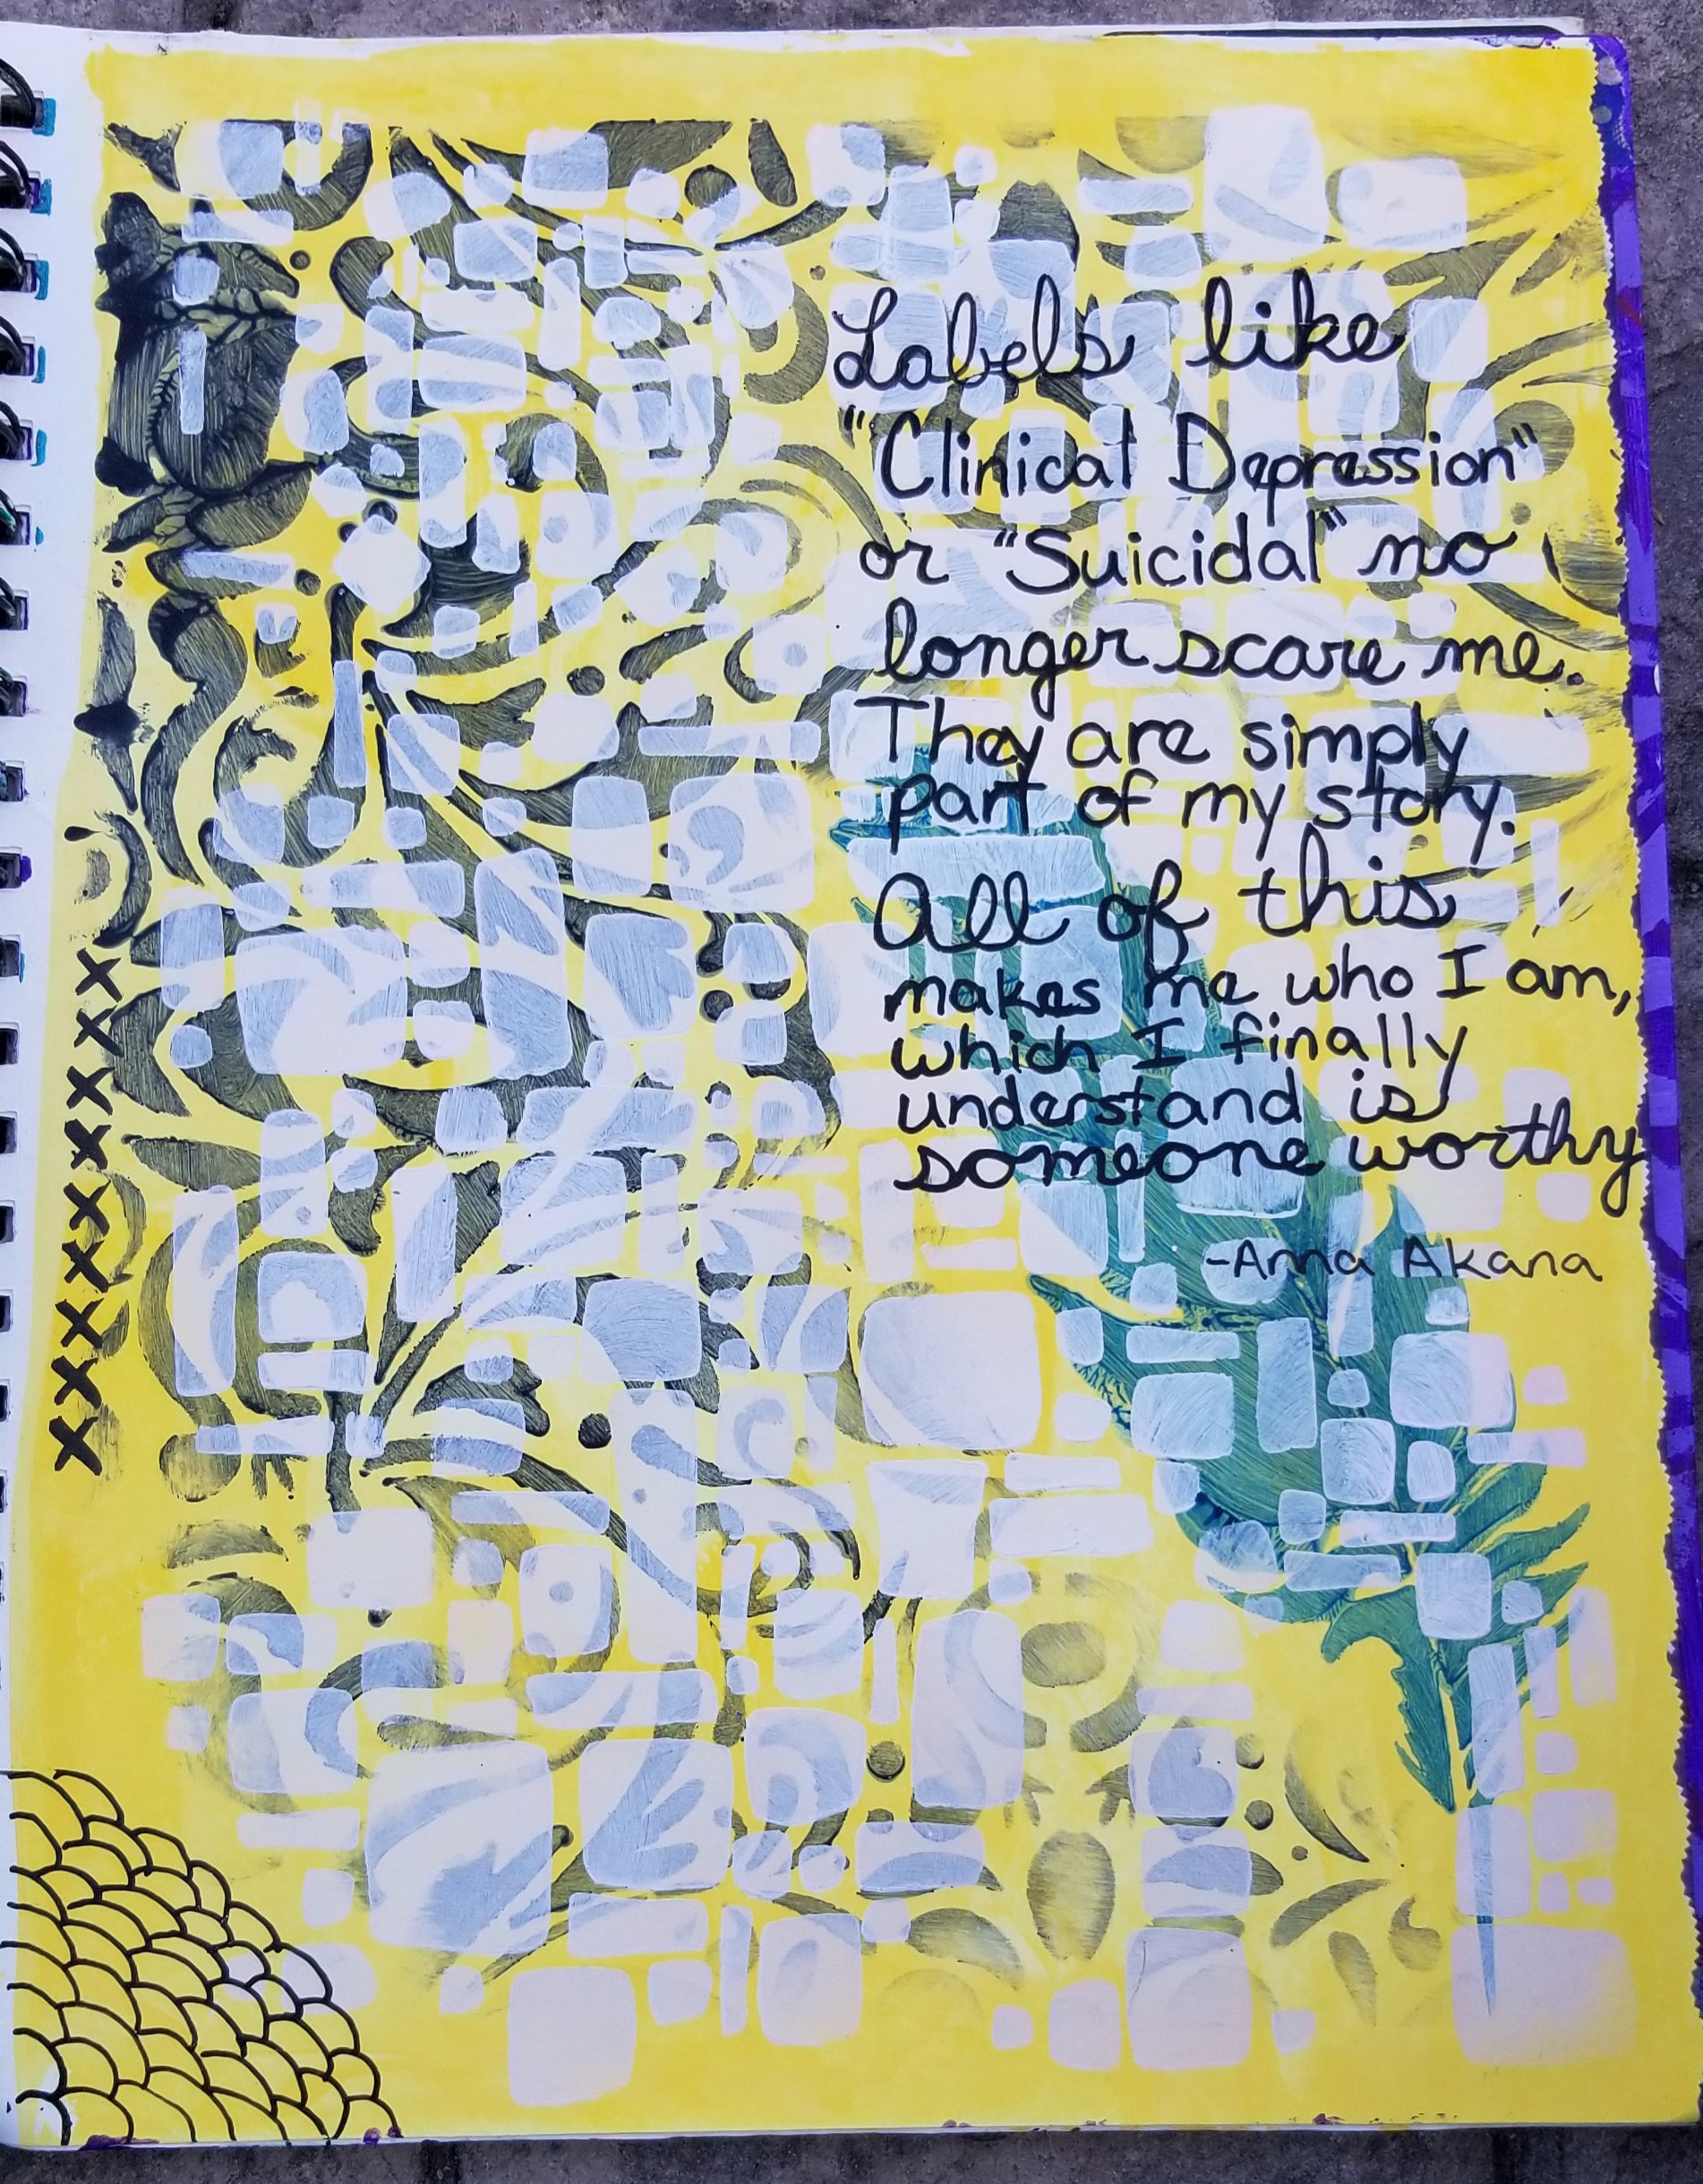 Labels like
"Clinical Depression"
or "Suicidal" no
longer scare me.
They are simply
part of my story.
All of this
makes me who I am,
which I finally
understand is
someone worthy
-Anna Akana
XXXXXXXXX